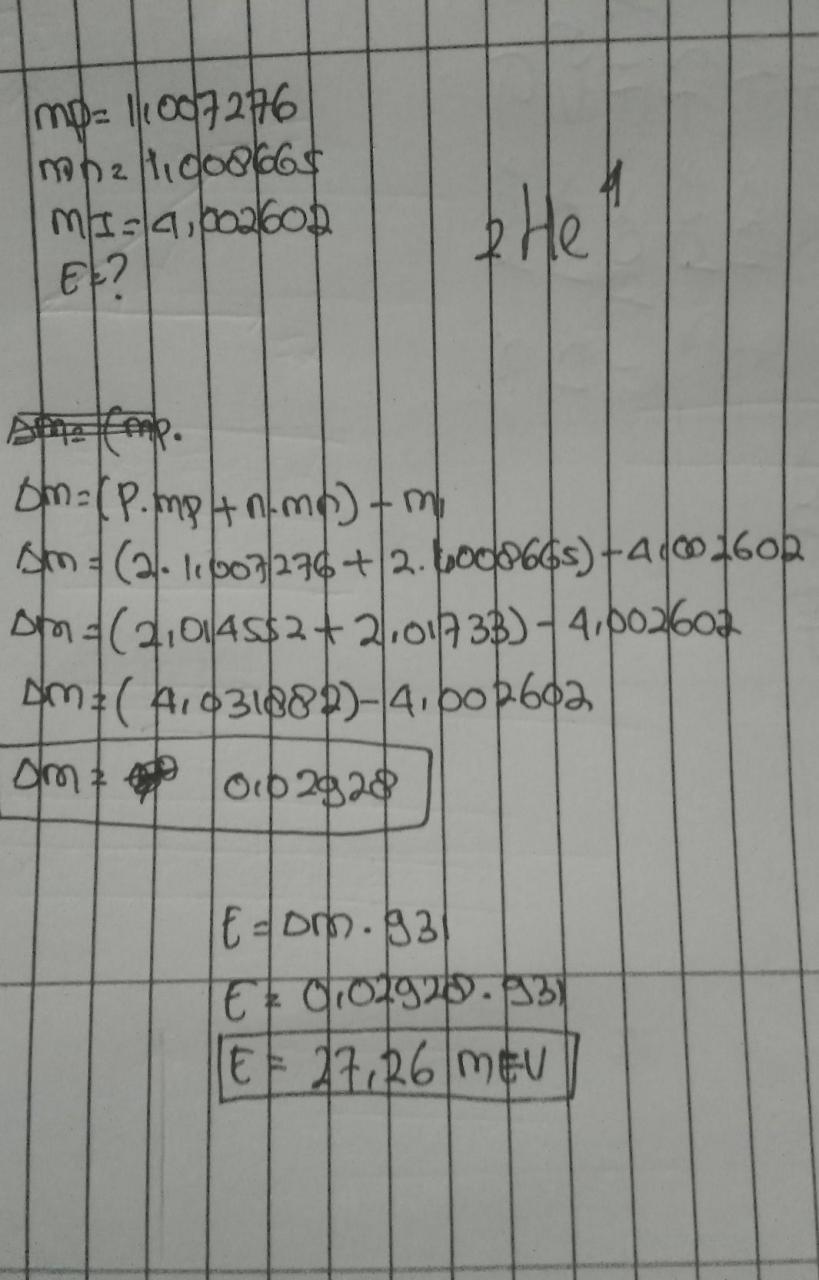 mp= 1,007276
mn= 1,008665
mI= 4,002602
E=?
2He4
Δm= (mp.
Δm=(P.mp + n.mn) - mi
Δm= (2. 1,007276 + 2. 1,008665) - 4,002602
Δm= (2,014552 + 2,01733) - 4,002602
Δm= ( 4,031882) - 4,002602
Δm= 0,02928
E = Δm . 931
E= 0,02928 . 931
E = 27,26 MEV